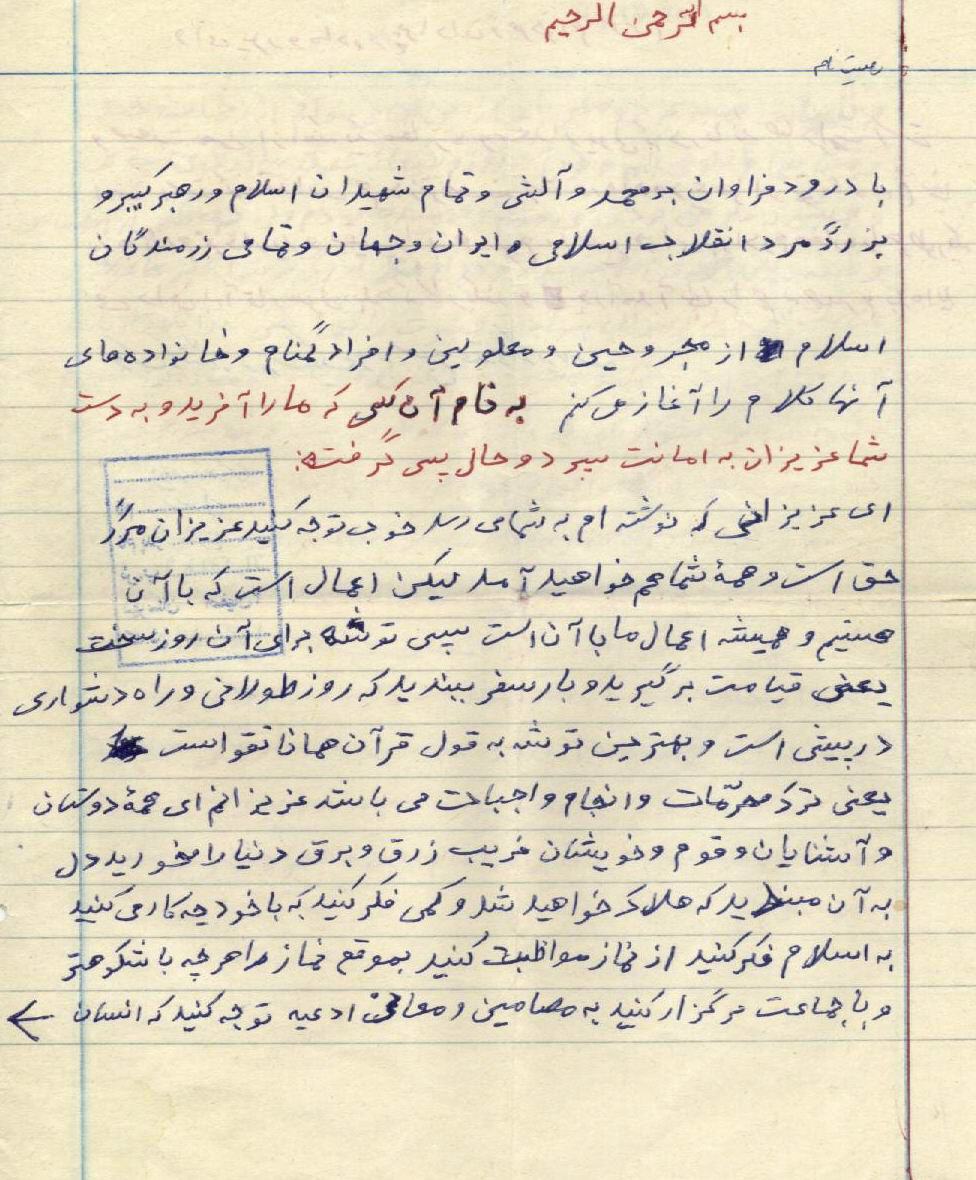 بسم الله الرحمن الرحیم
وصیت نامه
با درود فراوان بر محمد و آلش و تمام شهیدان اسلام و رهبر کبیر و
بزرگمرد انقلاب اسلامی ایران و جهان و تمامی رزمندگان
اسلام از مجروحین و معلولین و افراد گمنام و خانواده های
آنها کلام را آغاز می کنم به نام آن کسی که ما را آفرید و به دست
شما عزیزان به امانت سپرد و حال پس گرفت:
ای عزیزانی که نوشته ام به شما می رسد خوب توجه کنید عزیزان مرگ
حق است و همهٔ شما هم خواهید آمد لیکن اعمال است که با آن
هستیم و همیشه اعمال ما با آن است پس توشه برای آن روز سخت
یعنی قیامت برگیرید و بار سفر ببندید که روز طولانی و راه دشواری
در پیش است و بهترین توشه به قول قرآن همانا تقوا است
یعنی ترک محرّمات و انجام واجبات می باشد عزیزانم ای همهٔ دوستان
و آشنایان و قوم و خویشان فریب زرق و برق دنیا را مخورید دل
به آن مبندید که هلاک خواهید شد و کمی فکر کنید که با خود چه کار می کنید
به اسلام فکر کنید از نماز مواظبت کنید بموقع نماز را هر چه با شکوهتر
و با جماعت برگزار کنید به مضامین و معانی ادعیه توجه کنید که انسان